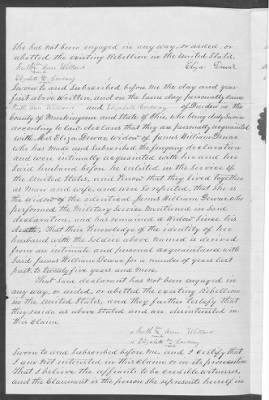 She has not been engaged in any way, or aided, or
abetted the existing Rebellion in the United States,
Ruth Ann Eliza
Elizabeth
Sworn to and Subscribed before me the day and year
first above Written, and on the same day personally came
Ruth Ann and Elizabeth of Dresden in the
County of Muskingum and State of Ohio, who being duly Sworn
according to law declares that they are personally acquainted
with Mrs Eliza widow of James William
who has made and Subscribed the foregoing declaration
and were intimately acquainted with her and her
said husband before he enlisted in the service of
the United States, and Know that they lived together
as man and wife, and were so reputed, that she is
the Widow of the identical James William who
performed the Military Service Mentioned in said
declaration, and has remained a Widow since his
death; That their Knowledge of the identity of her
husband with the Soldier above named is derived
from an intimate and personal acquaintance with
said James William for a number of years last
past to twenty five years and more.
That said declarant has not been engaged in
any way, or aided, or abetted the existing Rebellion
in the United States, and they further testify that
they reside as above stated and are disinterested in
this claim
Ruth Ann
Elizabeth
Sworn to and Subscribed before me, and I certify that
I am not interested in this claim or in its prosecution
That I believe the affiants to be credible witnesses,
and the Claimant is the person She represents herself in